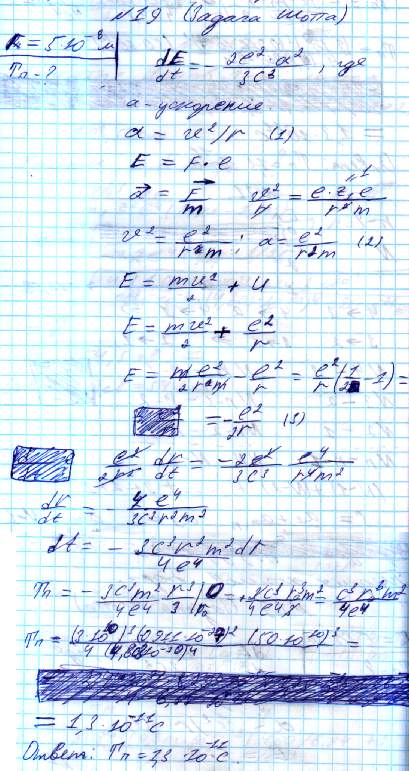 №19 (Задача Шотта)
r₀ = 5·10⁻⁹ м
Tп - ?
dE/dt = - 2e²·a²/3c³, где
a - ускорение.
a = v²/r (1)
E = F·e
a⃗ = F⃗/m v²/r = e·z₁e/r²m
v² = e²/rm; a = e²/r²m (2)
E = mv²/2 + U
E = mv²/2 + e²/r
E = me²/2rm - e²/r = e²/r (1/2 - 1) =
= - e²/2r (3)
e²/2r² dr/dt = - 2e²/3c³ e⁴/r⁴m²
dr/dt = - 4e⁴/3c³r²m²
dt = - 3c³r²m²/4e⁴ dr
Tп = - 3c³m²/4e⁴ r³/3 |⁰r₀ = + 3c³r₀³m²/4e⁴3 = c³r₀³m²/4e⁴
= 1,3·10⁻¹¹ с
Ответ: Tп = 1,3·10⁻¹¹ с.